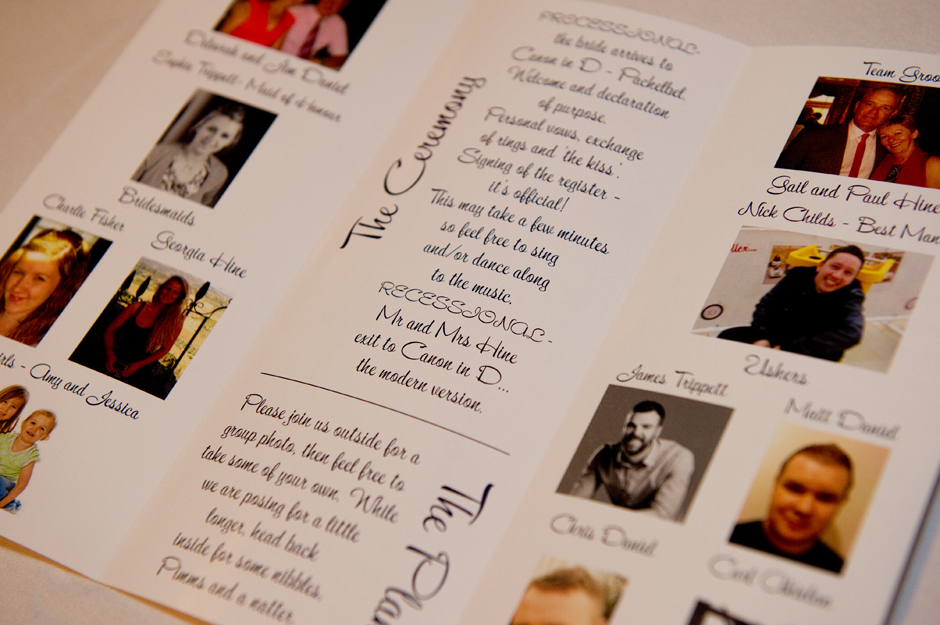 Deborah and Jim Daniel
Sophie Trippett - Maid of Honour
Bridesmaids
Charlie Fisher
Georgia Hine
Girls - Amy and Jessica
The Ceremony
PROCESSIONAL -
the bride arrives to
Canon in D - Pachelbel.
Welcome and declaration
of purpose.
Personal vows, exchange
of rings and 'the kiss'.
Signing of the register -
it's official!
This may take a few minutes
so feel free to sing
and/or dance along
to the music.
RECESSIONAL -
Mr and Mrs Hine
exit to Canon in D...
the modern version.
The Pla
Please join us outside for a
group photo, then feel free to
take some of your own. While
we are posing for a little
longer, head back
inside for some nibbles,
Pimms and a natter.
Team Groo
Gail and Paul Hine
Nick Childs - Best Man
Ushers
James Trippett
Matt Daniel
Chris Daniel